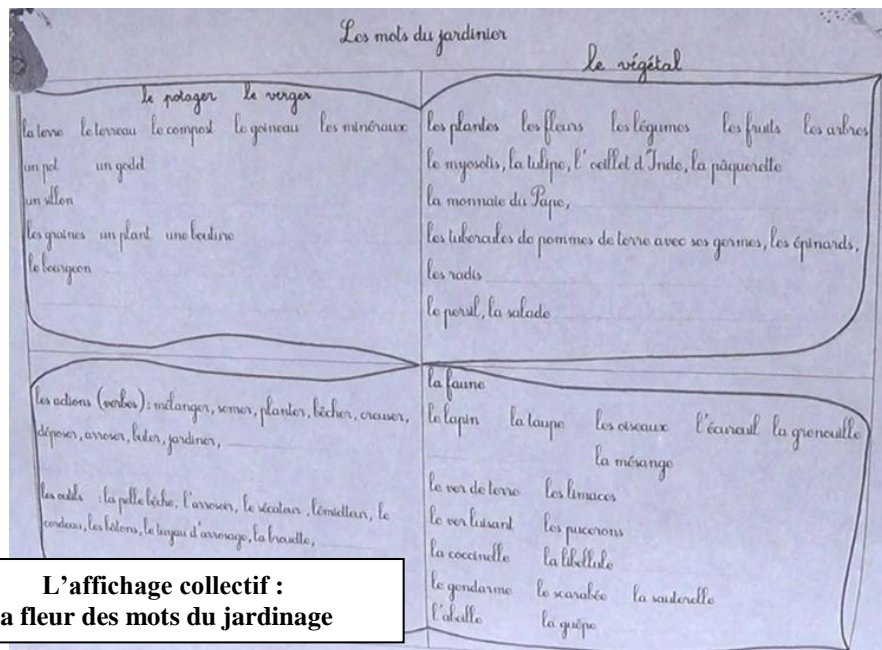 Les mots du jardinier
le potager le verger
la terre le terreau le compost le goineau les minéraux
un pot un godet
un sillon
les graines un plant une bouture
le bourgeon
le végétal
les plantes les fleurs les légumes les fruits les arbres
le myosotis, la tulipe, l'oeillet d'Inde, la pâquerette
la monnaie du Pape,
les tubercules de pommes de terre avec ses germes, les épinards,
les radis
le persil, la salade
les actions (verbes) : mélanger, semer, planter, bêcher, creuser,
déposer, arroser, buter, jardiner,
les outils : la pelle bêche, l'arrosoir, le sécateur, l'émietteur, le
cordeau, les bâtons, le tuyau d'arrosage, la brouette,
la faune
le lapin la taupe les oiseaux l'écureuil la grenouille
la mésange
le ver de terre les limaces
le ver luisant les pucerons
la coccinelle la libellule
le gendarme le scarabée la sauterelle
l'abeille la guêpe
L'affichage collectif :
a fleur des mots du jardinage